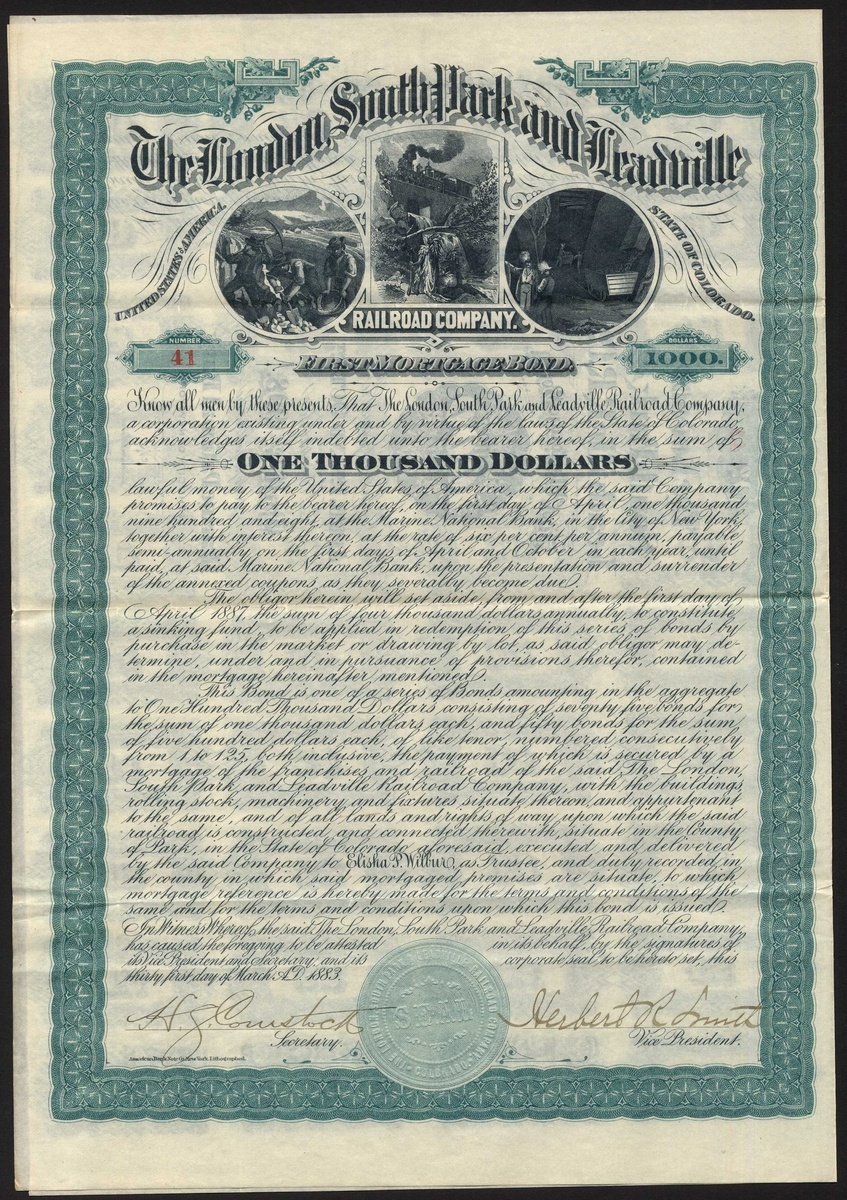 The London, South Park and Leadville
UNITED STATES of AMERICA.
STATE OF COLORADO.
RAILROAD COMPANY.
NUMBER
41
DOLLARS
1000.
FIRST MORTGAGE BOND.
Know all men by these presents, That The London, South Park and Leadville Railroad Company,
a corporation existing under and by virtue of the laws of the State of Colorado,
acknowledges itself indebted unto the bearer hereof, in the sum of
ONE THOUSAND DOLLARS
lawful money of the United States of America, which the said Company
promises to pay to the bearer hereof, on the first day of April, one thousand
nine hundred and eight, at the Marine National Bank, in the City of New York,
together with interest thereon, at the rate of six per cent. per annum, payable
semi-annually on the first days of April and October in each year, until
paid, at said Marine National Bank, upon the presentation and surrender
of the annexed coupons, as they severally become due.
The obligor herein will set aside, from and after the first day of
April 1887, the sum of four thousand dollars annually, to constitute
a sinking fund, to be applied in redemption of this series of bonds by
purchase in the market or drawing by lot, as said obligor may de-
termine, under and in pursuance of provisions therefor, contained
in the mortgage hereinafter mentioned.
This Bond is one of a series of Bonds amounting in the aggregate
to One Hundred Thousand Dollars consisting of seventy five bonds for
the sum of one thousand dollars each, and fifty bonds for the sum
of five hundred dollars each, of like tenor, numbered consecutively
from 1 to 125, both inclusive, the payment of which is secured by a
mortgage of the franchises and railroad of the said, The London,
South Park and Leadville Railroad Company, with the buildings,
rolling stock, machinery and fixtures situate thereon, and appurtenant
to the same, and of all lands and rights of way upon which the said
railroad is constructed, and connected therewith, situate in the County
of Park, in the State of Colorado, aforesaid, executed and delivered
by the said Company to Elisha P. Wilbur, as Trustee, and duly recorded, in
the county in which said mortgaged premises are situate, to which
mortgage reference is hereby made for the terms and conditions of the
same and for the terms and conditions upon which this bond is issued.
In Witness Whereof, the said The London, South Park and Leadville Railroad Company,
has caused the foregoing to be attested in its behalf, by the signatures of
its Vice President and Secretary, and its corporate seal to be hereto set, this
thirty first day of March A.D. 1883.
H. J. Comstock
Secretary.
SEAL
COLORADO
Herbert R Smith
Vice President.
American Bank Note Co. New York. Lithographed.